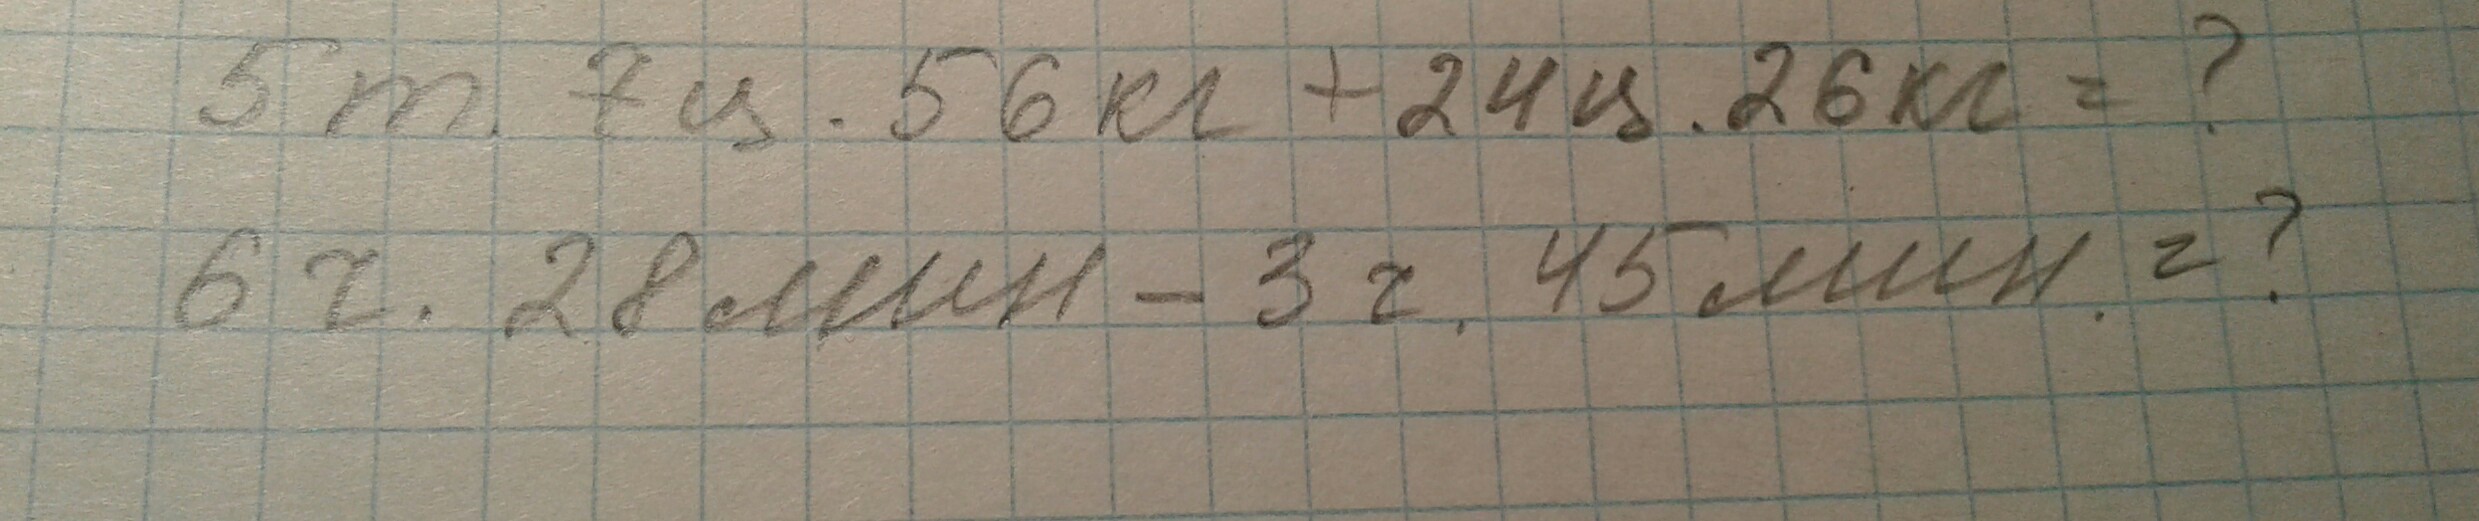 5т. 7ц. 56кг + 24ц. 26кг = ?
6ч. 28мин - 3ч. 45мин. = ?